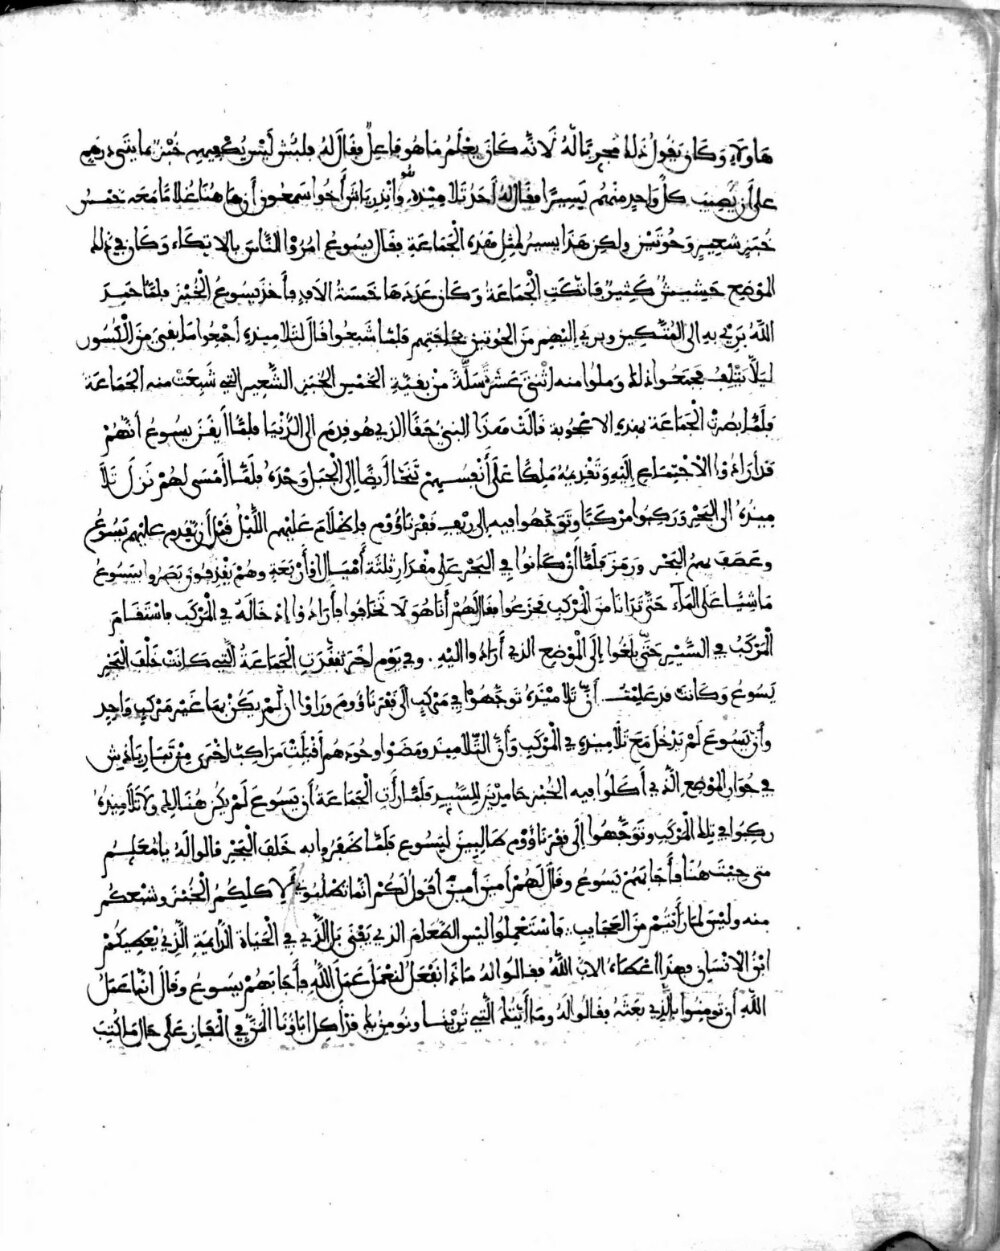 هاولاء وكان يقول ذلك مجربا له لانه كان يعلم ما هو فاعل فقال له فلبش ليس يكفيهم خبز بمايتي درهم
على أن يصيب كل واحد منهم يسيرا فقال له أحد تلاميذه وانذرياش أخوا سمعون أن هاهنا غلاما معه خمس
خبز شعير وحوتين ولكن هذا يسير لمثل هذه الجماعة فقال يسوع امروا الناس بالاتكاء وكان في ذلك
الموضع حشيش كثير فاتكت الجماعة وكان عددها خمسة الاف فأخذ يسوع الخبز فلما حمد
الله بري به الى المتكين وبري إليهم من الحوتين بحاجتهم فلما شبعوا قال لتلاميذه اجمعوا ما بقى من الكسور
ليلا يتلف فجمعوا ذلك وملوا منه اثنتى عشرة سلة من بقية الخمس الخبز الشعير التي شبعت منه الجماعة
فلما بصرت الجماعة بهذه الاعجوبة قالت هذا النبي حقا الذي هو قدم الى الدنيا فلما أيقن يسوع أنهم
قد أرادوا الاجتماع إليه وتقديمه ملكا على أنفسهم تنحا أيضا إلى الجبل وحده فلما أمسى لهم نزل تلا
ميذه الى البحر وركبوا مركبا وتوجهوا فيه إلى ريف قفرناؤوم فاظلام عليهم الليل قبل أن يقدم عليهم يسوع
وعصف بهم البحر فلما أن كانوا في البحر على مقدار ثلثة أميال أو أربعة وهم يقذفون بصروا بيسوع
ماشيا على الماء حتى تدانا من المركب فجزعوا فقال لهم أنا هو لا تخافوا فأرادوا إدخاله في المركب فاستقام
المركب في السير حتى بلغوا إلى الموضع الذي أرادوا اليه . وفي يوم اخر تفقدت الجماعة التي كانت خلف البحر
يسوع وكانت قد علمت أن تلاميذه توجهوا في مركب الى قفرناؤوم وراوا ان لم يكن بها غير مركب واحد
وأن يسوع لم يدخل مع تلاميذه في المركب وأن التلاميذ ومضوا وحودهم أقبلت مراكب اخرى من تبارياذيش
في جوار الموضع الذي أكلوا فيه الخبز حامدين للسيد فلما رأت الجماعة أن يسوع لم يكن هنالك ولا تلاميذه
ركبوا في تلك المركب وتوجهوا إلى قفرناؤوم طالبين ليسوع فلما ظفروا به خلف البحر قالوا له يا معلم
متى جيت هنا فأجابهم يسوع وقال لهم أمين أمين أقول لكم انما تطلبوني لاكلكم الخبز وشبعكم
منه وليس لما رأيتم من العجايب فاستعملوا ليس الطعام الذي يفنى بل الذي في الحياة الدايمة الذي يعطيكم
ابن الانسان فهذا اعطاه الاب الله فقالوا له ما ذا نفعل لنعمل عمل الله فأجابهم يسوع وقال انما عمل
الله أن تومنوا بالذي بعثه فقالوا له وما أيتك التي ترينا ونومن بك قد أكل اباؤنا المن في القفار على حال ما كتب